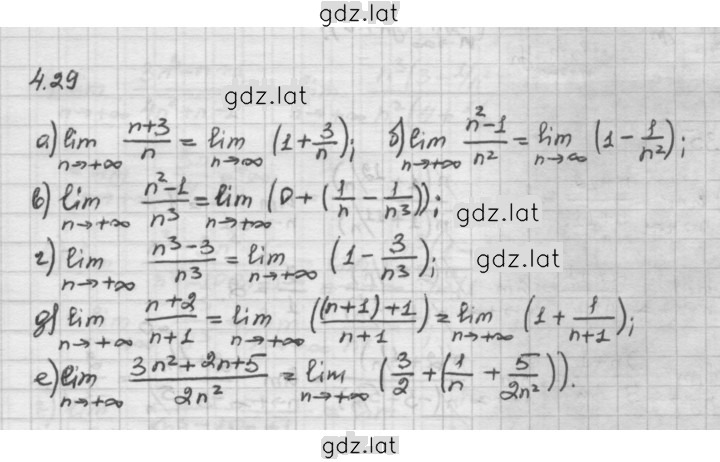 gdz.lat
4.29
gdz.lat
а) lim n→+∞ (n+3)/n = lim n→+∞ (1 + 3/n); б) lim n→+∞ (n²-1)/n² = lim n→∞ (1 - 1/n²);
в) lim n→+∞ (n²-1)/n³ = lim n→+∞ (0 + (1/n - 1/n³));
gdz.lat
г) lim n→+∞ (n³-3)/n³ = lim n→+∞ (1 - 3/n³);
gdz.lat
д) lim n→+∞ (n+2)/(n+1) = lim n→+∞ (((n+1)+1)/(n+1)) = lim n→+∞ (1 + 1/(n+1));
е) lim n→+∞ (3n²+2n+5)/2n² = lim n→+∞ (3/2 + (1/n + 5/2n²)).
gdz.lat